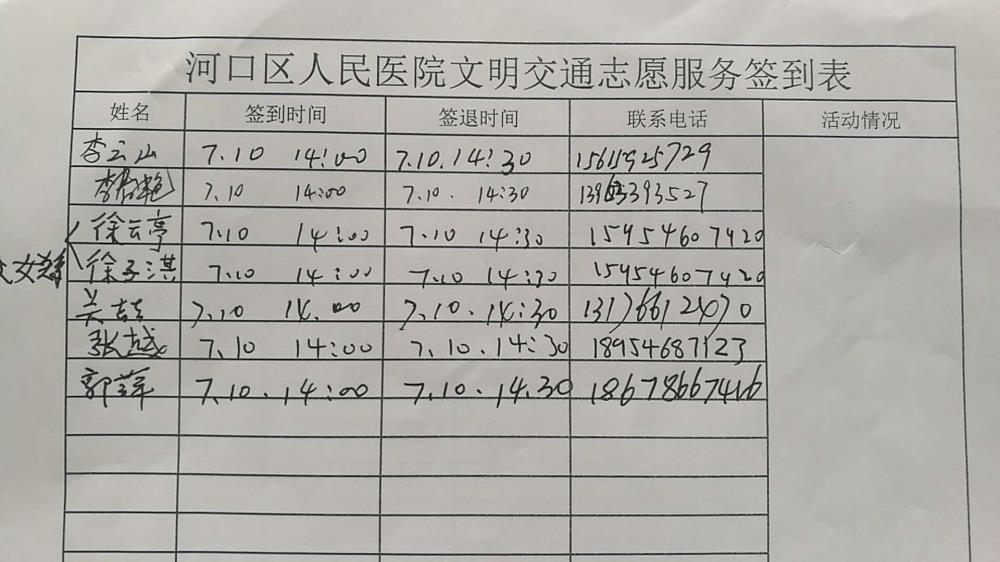 河口区人民医院文明交通志愿服务签到表
姓名 签到时间 签退时间 联系电话 活动情况
李云山 7.10 14:00 7.10.14:30 15611925729
7.10 14:00 7.10. 14:30
徐云亭 7.10 14:00 7.10 14:30 15954607420
徐子淇 7.10 14:00 7.10 14:30 15954607420
吴 7.10 14.00 7.10.14:30 13176612470
张越 7.10 14:00 7.10.14:30 18954687123
郭萍 7.10.14:00 7.10.14.30 18678667416